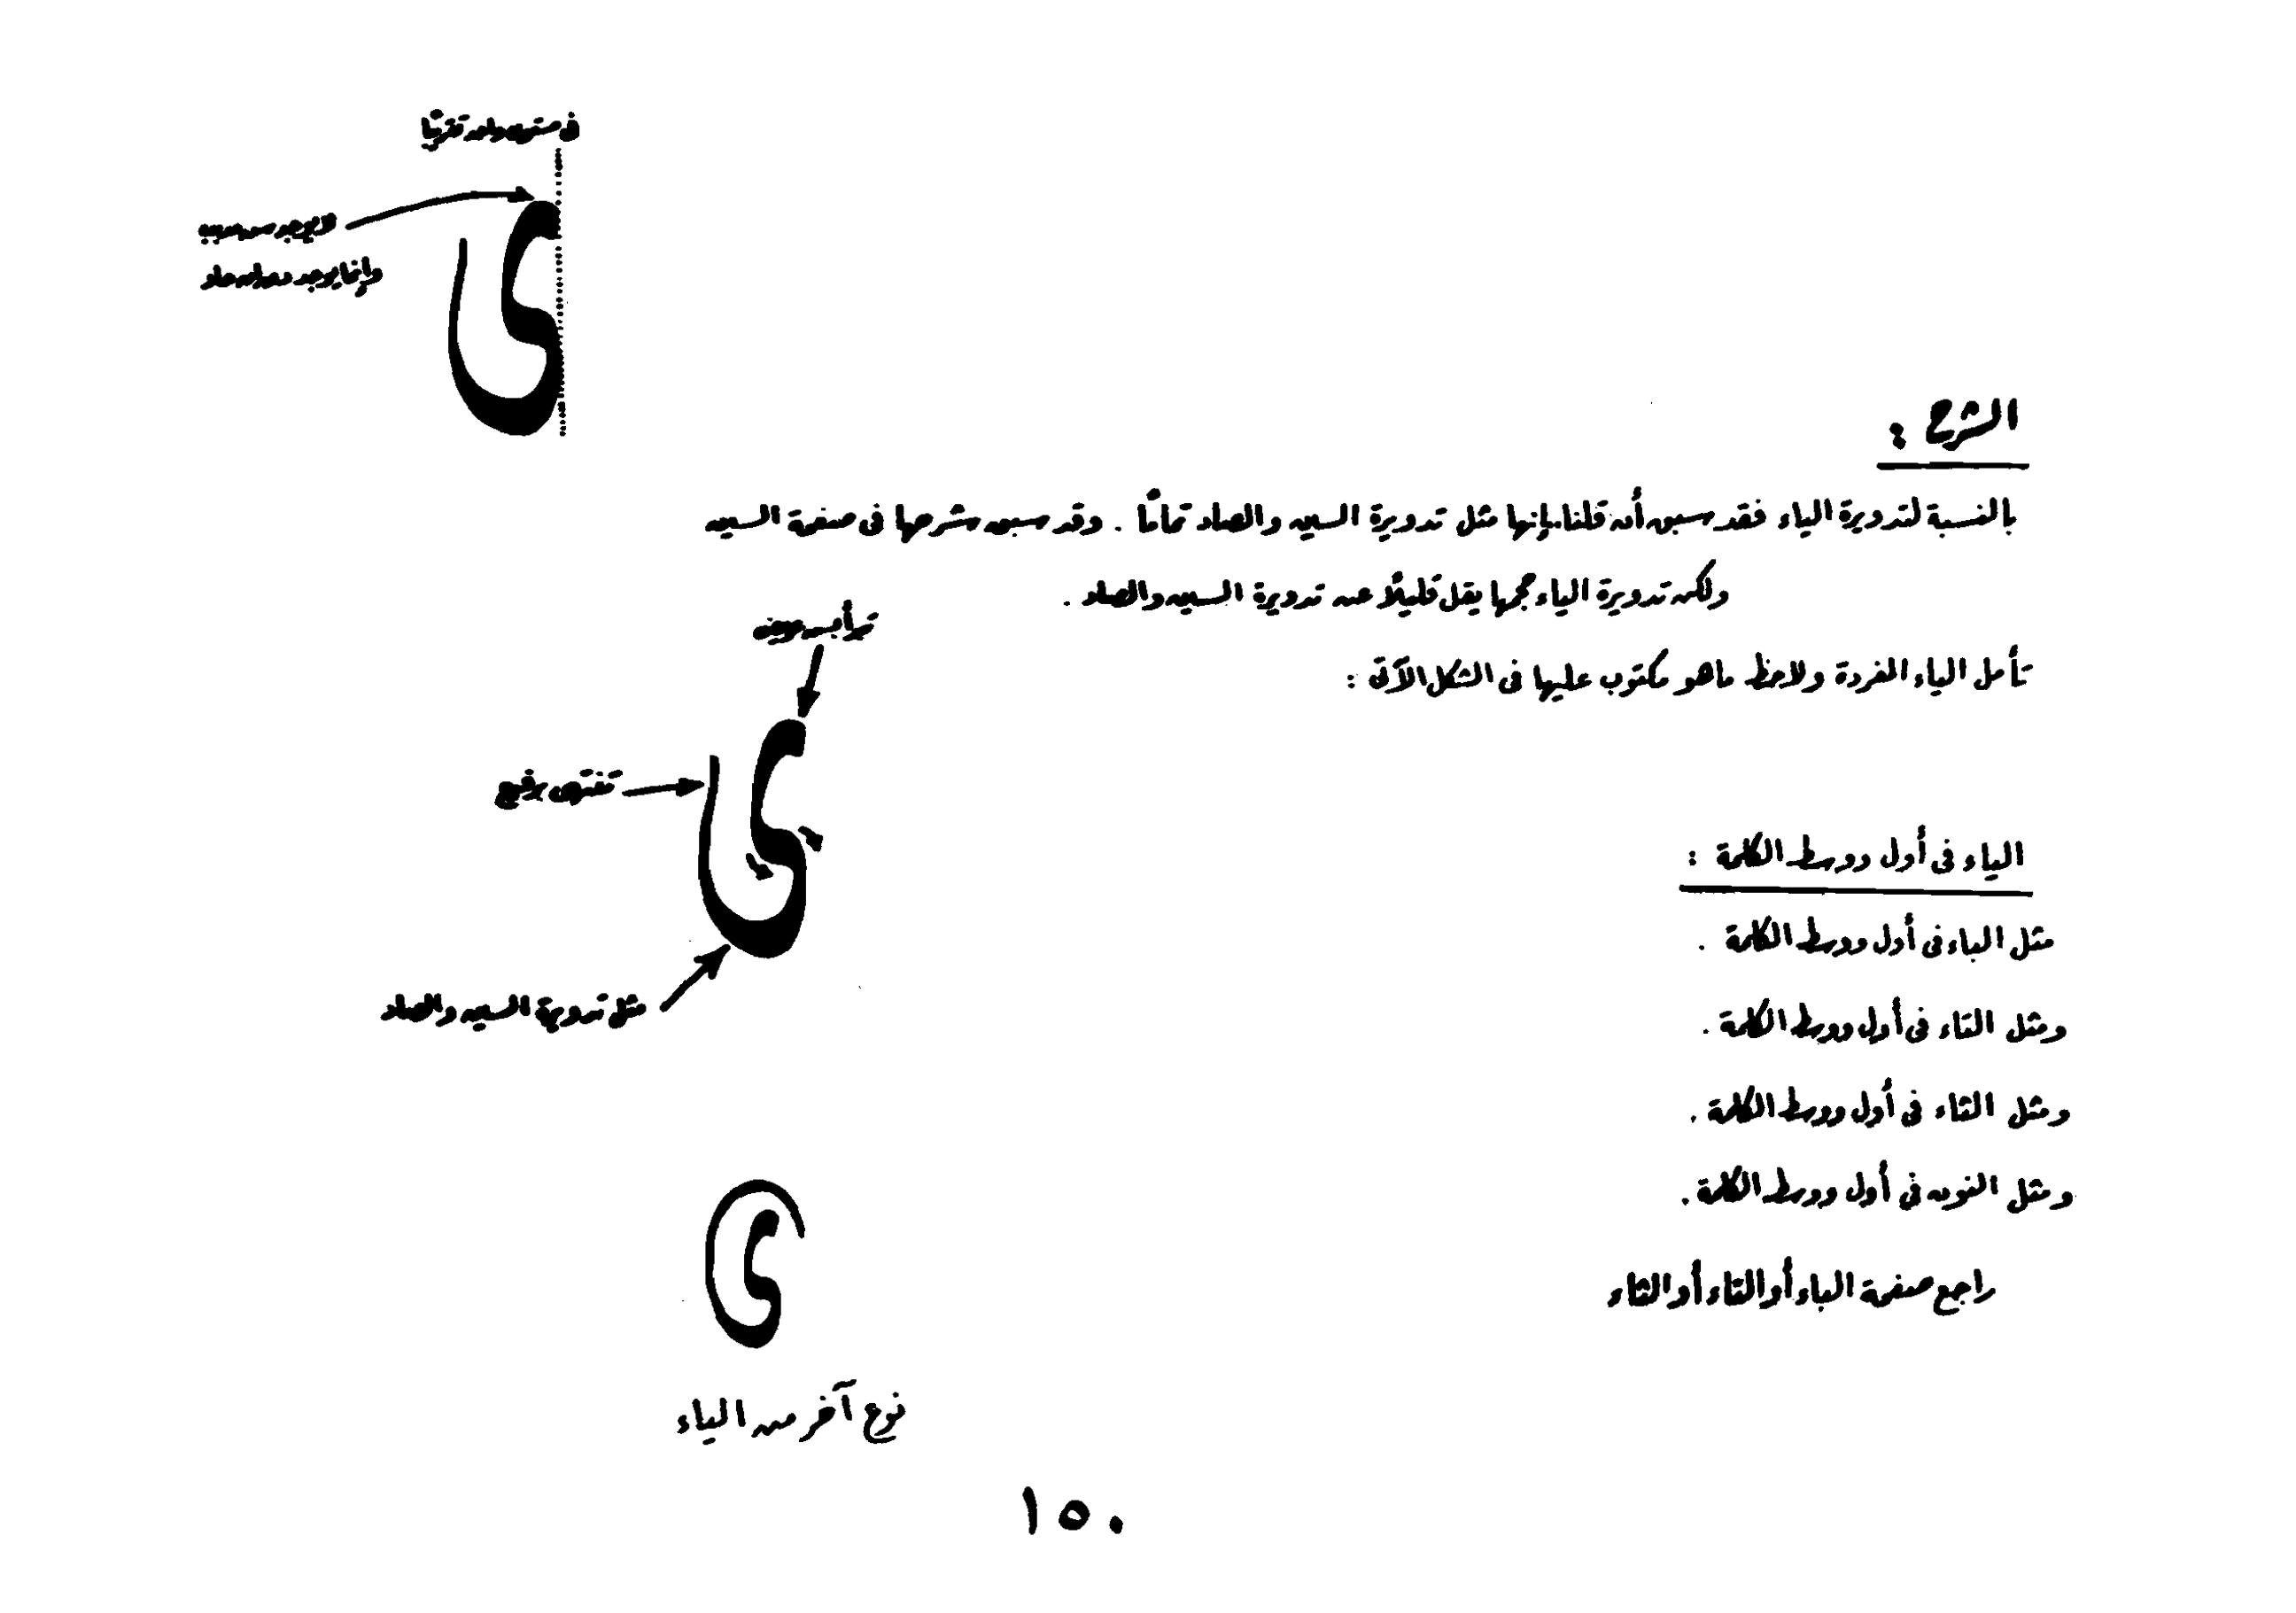 فى مستوى واحد تقريبًا
لا يوجد سن مدبب
وإنما يوجد دوران حاد
الشرح :
بالنسبة لتدويرة الياء فقد سبق أن قلنا بإنها مثل تدويرة السين والصاد تمامًا . وقد سبق شرحها فى صفحة السين
ولكن تدويرة الياء حجمها يقل قليلًا عن تدويرة السين والصاد .
تأمل الياء المفردة ولاحظ ماهو مكتوب عليها فى الشكل الآتى :
تبدأ بسن عريض
تنتهى برفيع
مثل تدويرة السين والصاد
الياء فى أول ووسط الكلمة :
مثل الباء فى أول ووسط الكلمة .
ومثل التاء فى أول ووسط الكلمة .
ومثل الثاء فى أول ووسط الكلمة .
ومثل النون فى أول ووسط الكلمة .
راجع صفحة الباء أو التاء أو الثاء
ى
ى
ى
نوع آخر من الياء
١٥٠